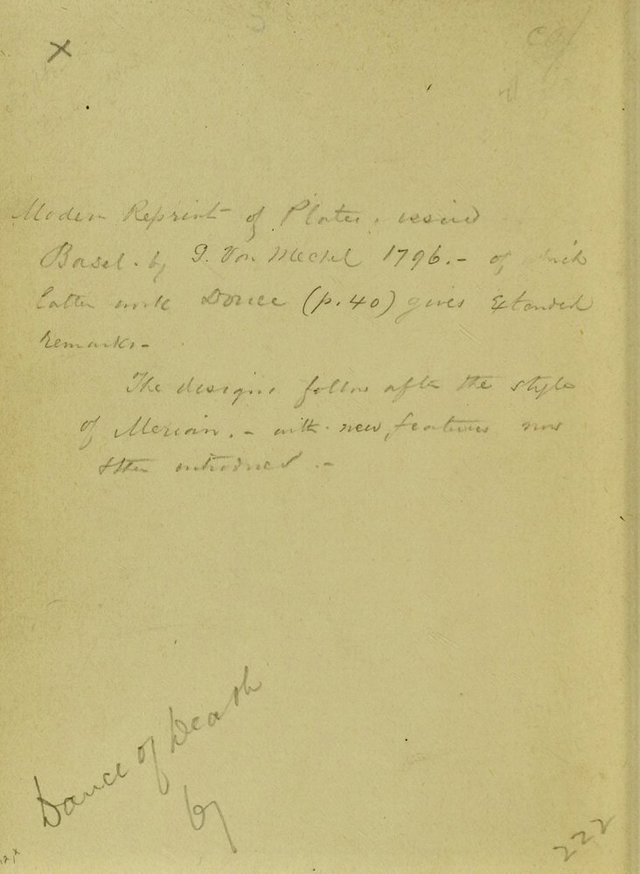 x
Modern Reprint of Plates. issued
Basel. by G. Von Mechel 1796. - of which
latter work Douce (p. 40) gives Extended
Remarks -
The designs follow after the style
of Merian. - with new features now
& then introduced. -
Dance of Death
by
222